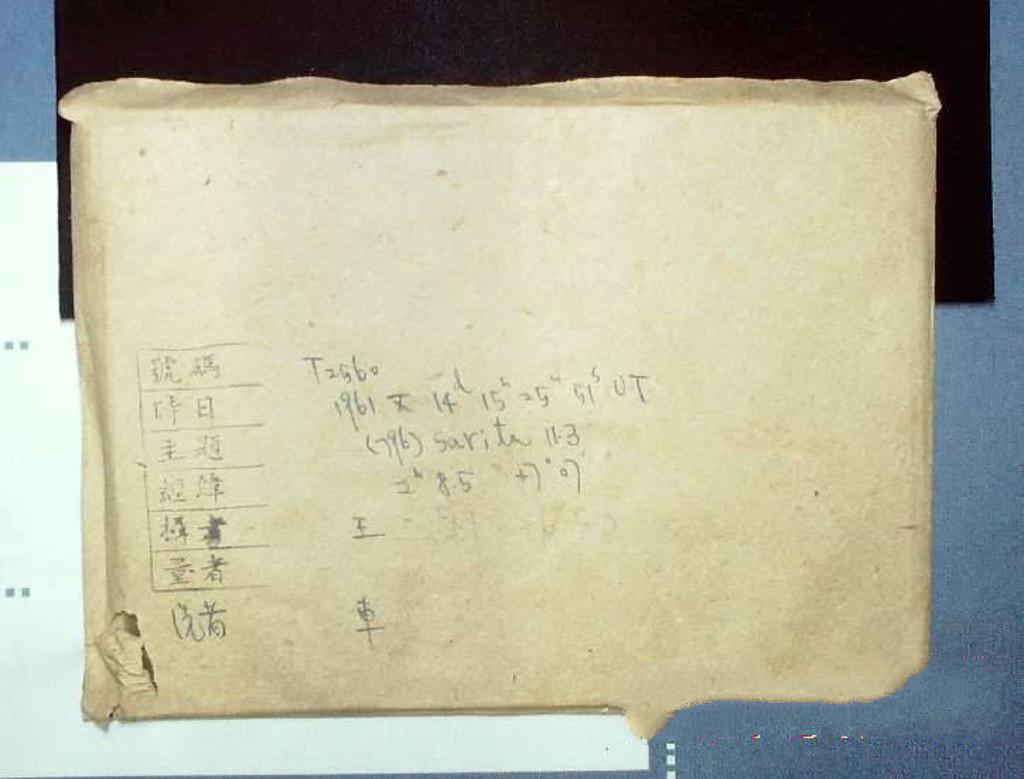 號碼 T2560
時日 1961 X 14d 15h 25m 51s UT
主題 (796) Sarita 11.3
經緯 2h 8.5 +7° 07'
攝者 王
量者
洗者 車